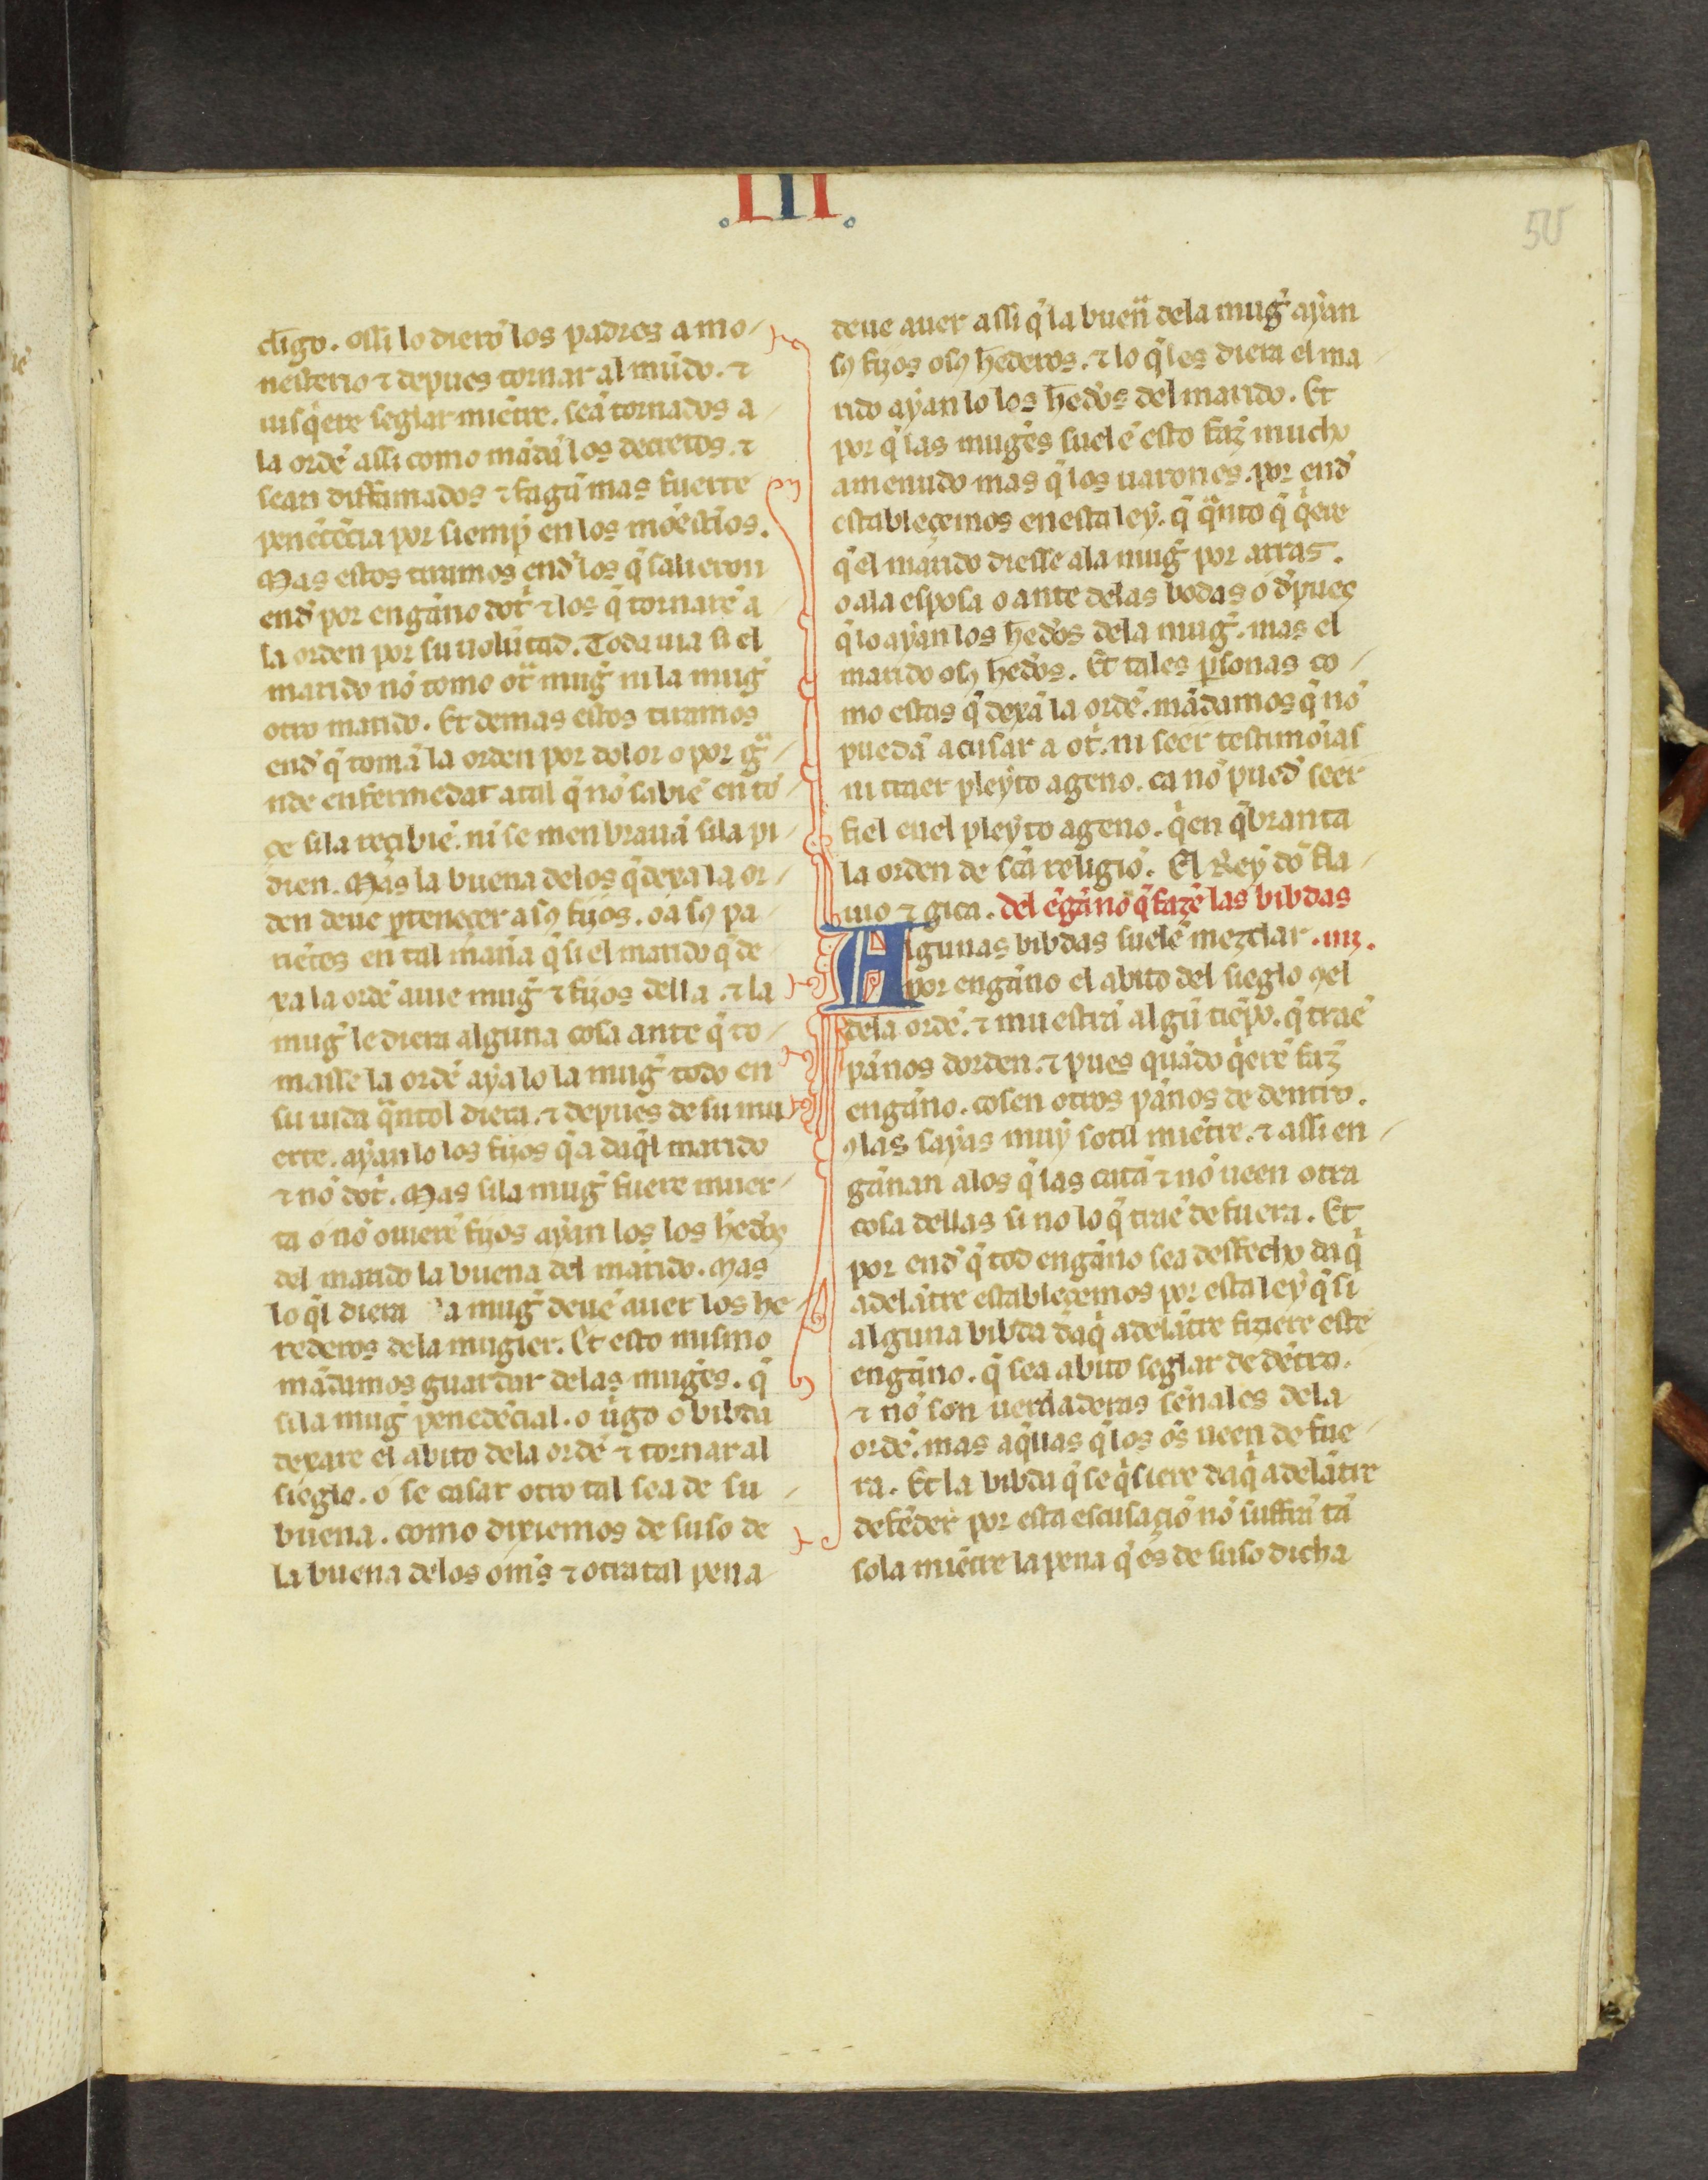 .III.
50
cl̄igo. assi lo dierō los padres a mo-
nesterio ⁊ depues tornar al mūdo. ⁊
uisq̄ere seglar miētre. seā tornados a
la ordē assi como mādā los decretos. ⁊
sean diffamados ⁊ fagā mas fuerte
penētēcia por siemp̄ en los mōest̄ios.
Mas estos tiramos end̄ los q̄ salieron
end̄ por engāno dot̄ ⁊ los q̄ tornarē a
la orden por su uolūtad. Toda uia si el
marido nō tome ot̄ muḡ ni la muḡ
otro marido. Et demas estos tiramos
end̄ q̄ tomā la orden por dolor o por ḡ-
nde enfermedat atal q̄ nō sabiē en tō-
çe sila reçibiē. ni se men brauā sila pi-
dien. Mas la buena delos q̄ dexa la or-
den deue ꝑteneçer a sꝯ fijos. o a sꝯ pa-
riētes en tal man̄a q̄ si el marido q̄ de-
xa la ordē auie muḡ ⁊ fijos della. ⁊ la
muḡ le diera alguna cosa ante q̄ to-
masse la ordē aya lo la muḡ todo en
su uida q̄ntol diera. ⁊ depues de su mu
erte. ayan lo los fijos q̄ a daq̄l marido
⁊ nō dot̄. Mas sila muḡ fuere muer-
ta o nō ouierē fijos ayan los los hed̄os
del marido la buena del marido. Mas
lo q̄l diera la muḡ deuē auer los he-
rederos dela mugier. Et esto mismo
mādamos guardar delas muḡes. q̄
sila muḡ penedēcial. o ūgō o bibda
dexare el abito dela ordē ⁊ tornar al
sieglo. o se casar otro tal sea de su-
buena. como dixiemos de suso de
la buena delos om̄s ⁊ otra tal pena-
deue auer assi q̄ la buen̄ dela muḡ ayan
sꝯ fijos o sꝯ hederos. ⁊ lo q̄ les diera el ma-
rido ayan lo los hed̄os del marido. Et
por q̄ las muḡes suelē esto faz̄ mucho
amenudo mas q̄ los uarones. por end̄
estableçemos en esta ley. q̄ q̄nto q̄ q̄ere
q̄ el marido diesse ala muḡ por arras.
o ala esposa o ante delas bodas o d̄pues
q̄ lo ayan los hed̄os dela muḡ. mas el
marido o sꝯ hed̄os. Et tales ꝑsonas co-
mo estas q̄ dexā la ordē. mādamos q̄ nō
puedā acusar a ot̄. ni seer testimōias
ni traer pleyto ageno. ca nō pued̄ seer
fiel en el pleyto ageno. q̄en q̄branta
la orden de sc̄a religiō. El Rey dō fla-
uio ⁊ gica. del ēgāno q̄ fazē las bibdas
Algunas bibdas suelē mezclar .iiij.
por engāno el abito del sieglo ꝯel
dela ordē. ⁊ muestrā algū tiēpo. q̄ traē
pānos dorden. ⁊ pues quādo q̄erē faz̄
engāno. cosen otros pānos de dentro.
ꝯlas sayas muy sotil miētre. ⁊ assi en-
gānan alos q̄ las catā ⁊ nō ueen otra
cosa dellas si no lo q̄ traē de fuera. Et
por end̄ q̄ tod engāno sea desfecho daq̄
adelātre estableçemos por esta ley q̄ si
alguna bibda daq̄ adelātre fiziere este
engāno. q̄ sea abito seglar de dētro.
⁊ nō son uerdaderas sēnales dela
ordē. mas aq̄llas q̄ los ōs ueen de fue-
ra. Et la bibda q̄ se q̄siere daq̄ adelātre
defēder por esta escusaçiō nō suffrā tā
sola miētre la pena q̄ es de suso dicha